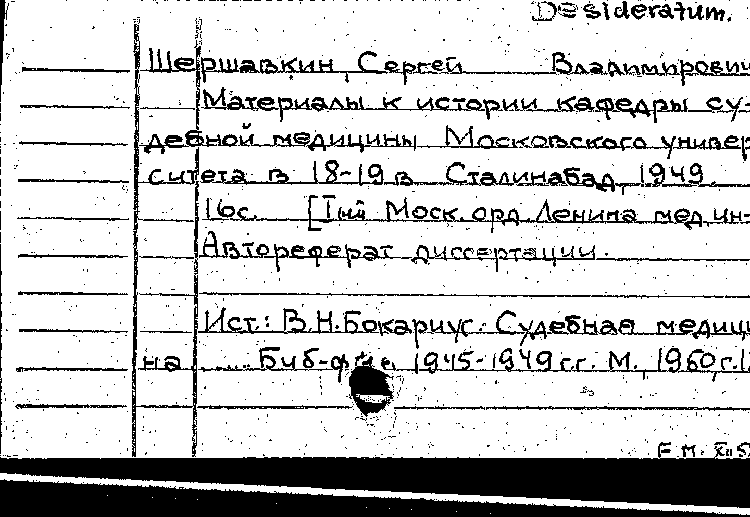 Desideratum.
Шершавкин, Сергей Владимирович
Материалы к истории кафедры су-
дебной медицины Московского универ
ситета в 18-19 в Сталинабад, 1949.
16с. [Iый Моск. орд. Ленина мед. ин-
Автореферат диссертации.
Ист.: В.Н. Бокариус. Судебная медици
на ..... 1945-1949 г.г. М., 1960, с.
F. M.